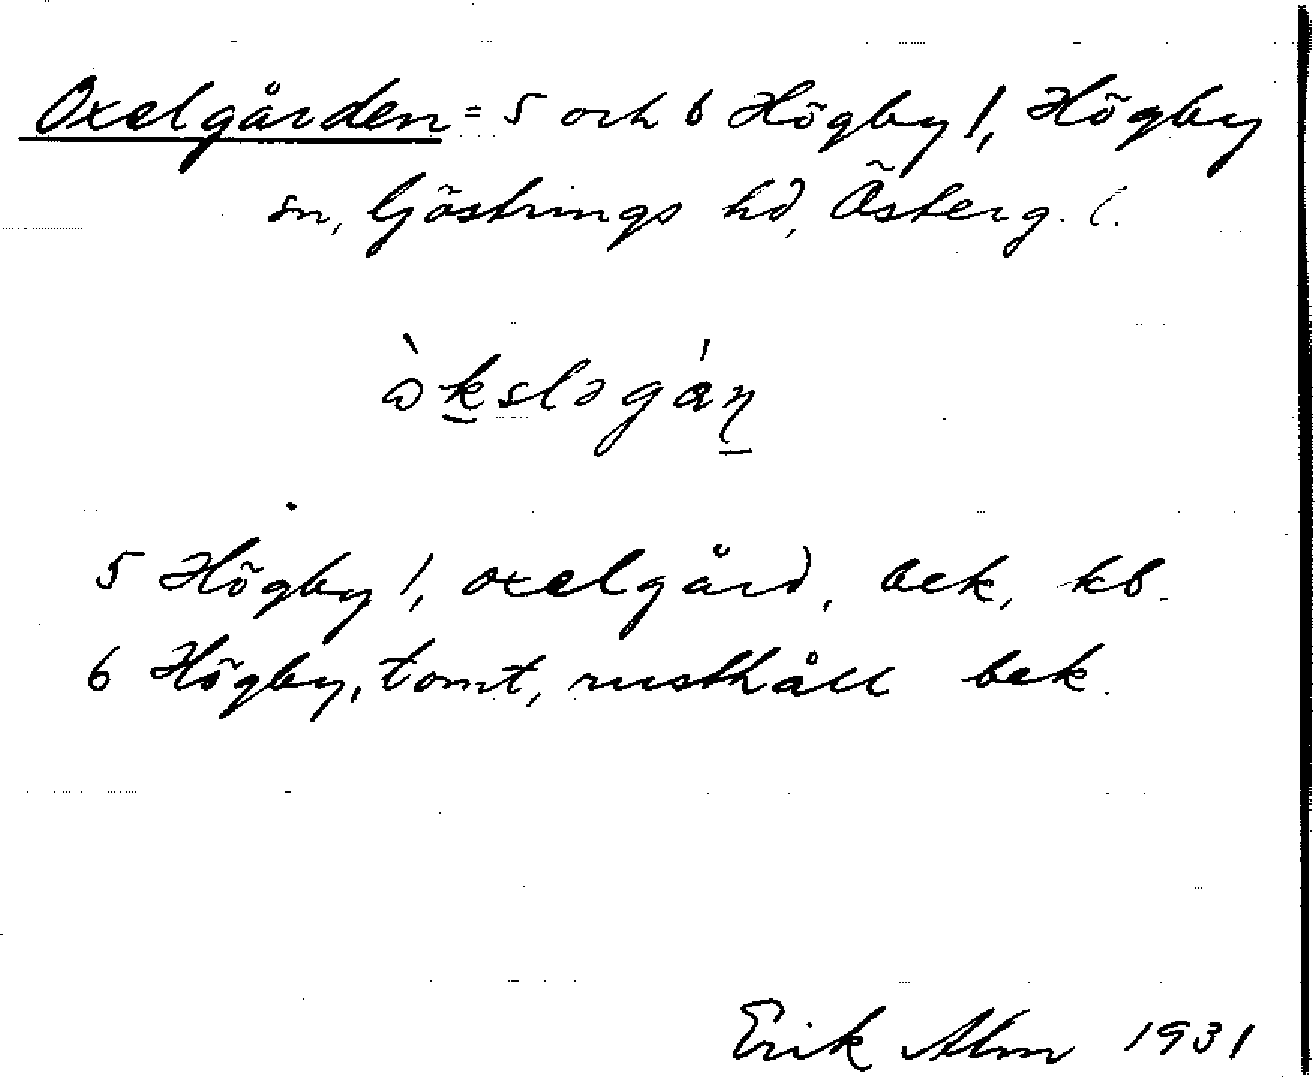 Oxelgården = 5 och 6 Högby 1, Högby
sn, Göstrings hd, Österg. l.
òkslǝgán
5 Högby 1, oxelgård, bek, kb.
6 Högby, tomt, rusthåll bek.
Erik Alm 1931